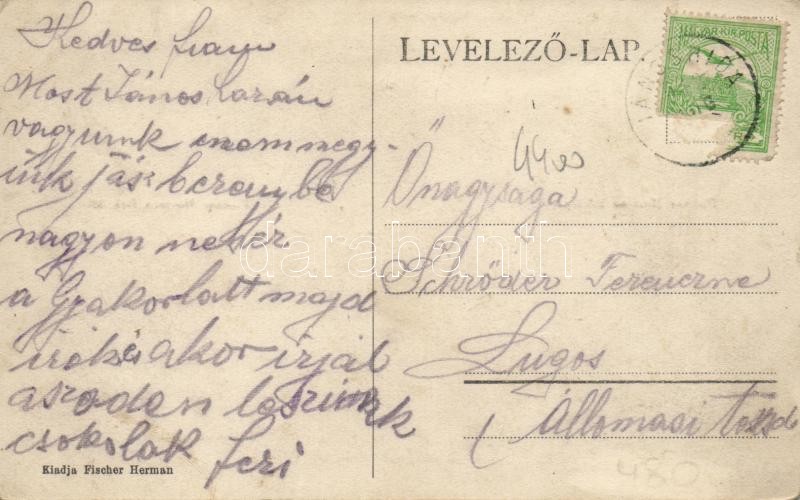 Kedves fiam
Most Jánosházán
vagyunk innen megy-
ünk Jász berénybe
nagyon nehéz
a Gyakorlatt majd
irok és akor irjál
aszodon leszünk
csokolak feri
Kiadja Fischer Herman
LEVELEZŐ-LAP.
MAGYAR KIR. POSTA
44 00
Önagysága
Schröder Ferencne
Lugos
Állomasi
480
darabanth